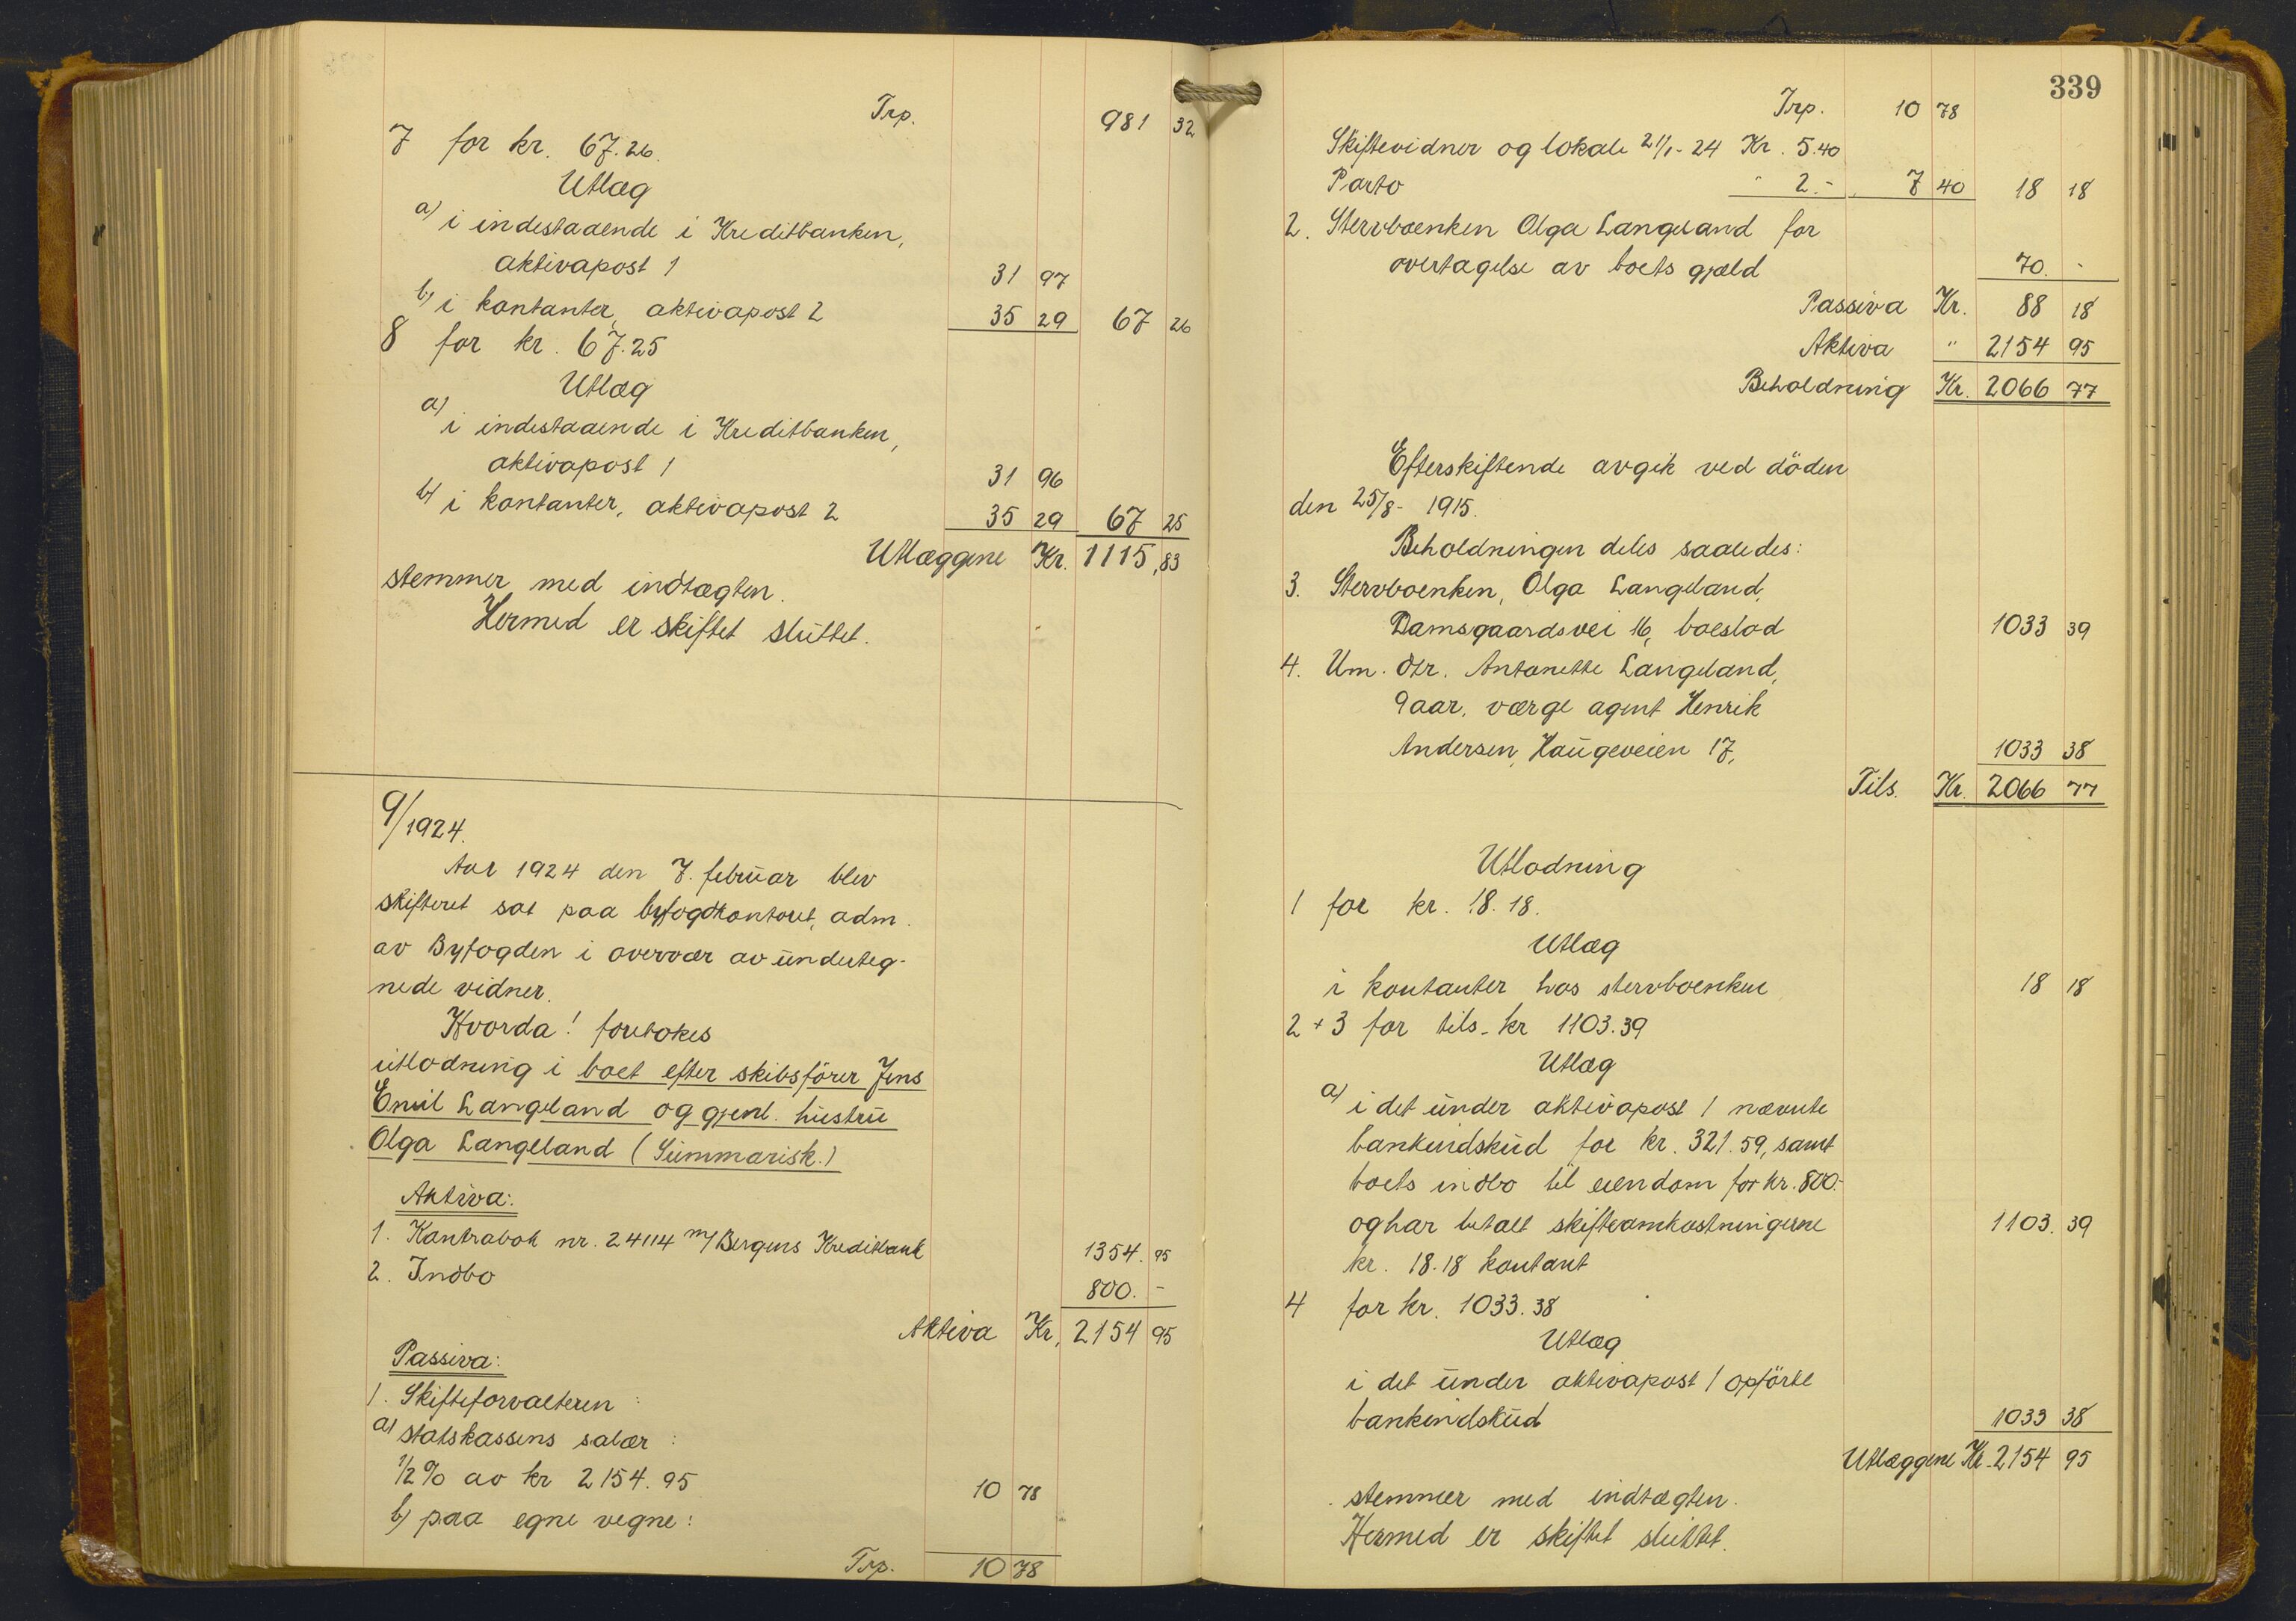 Trp. 981 32
7 for kr. 67.26.
Utlæg
a) i indestaaende i Kreditbanken,
aktivapost 1 31 97
b) i kontanter, aktivapost 2 35 29 67 26
8 for kr. 67.25
Utlæg
a) i indestaaende i Kreditbanken,
aktivapost 1 31 96
b) i kontanter, aktivapost 2 35 29 67 25
Utlæggene Kr. 1115,83
stemmer med indtægten.
Hermed er skiftet sluttet.
9/1924.
Aar 1924 den 7. februar blev
skifteret sat paa byfogdkontoret, adm.
av Byfogden i overvær av underteg-
nede vidner.
Hvorda! foretokes
utlodning i boet efter skibsfører Jens
Emil Langeland og gjenl. hustru
Olga Langeland (Summarisk.)
Aktiva:
1. Kontrabok nr. 24114 m/Bergens Kreditbank 1354.95
2. Indbo 800.-
Aktiva Kr. 2154 95
Passiva:
1. Skifteforvalteren :
a) statskassens salær :
1/2% av kr 2154.95 10 78
b) paa egne vegne:
Trp. 10 78
339
Trp. 10 78
Skiftevidner og lokale 21/1-24 Kr. 5.40
Porto " 2.- 7 40 18 18
2. Stervboenken Olga Langeland for
overtagelse av boets gjæld 70.-
Passiva Kr. 88 18
Aktiva " 2154 95
Beholdning Kr. 2066 77
Efterskiftende avgik ved döden
den 25/8- 1915.
Beholdningen deles saaledes:
3. Stervboenken, Olga Langeland,
Damsgaardsvei 16, boeslod 1033 39
4. Um. dtr. Antonette Langeland,
9 aar, værge agent Henrik
Andersen, Haugeveien 17, 1033 38
Tils. Kr. 2066 77
Utlodning
1 for kr. 18.18.
Utlæg
i kontanter hos stervboenken 18 18
2 + 3 for tils. kr 1103.39
Utlæg
a) i det under aktivapost 1 nævnte
bankindskud for kr. 321.59, samt
boets indbo til eiendom for kr. 800.-
og har betalt skifteomkostningerne 1103.39
kr. 18.18 kontant
4 for kr. 1033.38
Utlæg
i det under aktivapost 1 opförte
bankindskud 1033 38
Utlæggene Kr. 2154 95
stemmer med indtægten.
Hermed er skiftet sluttet.